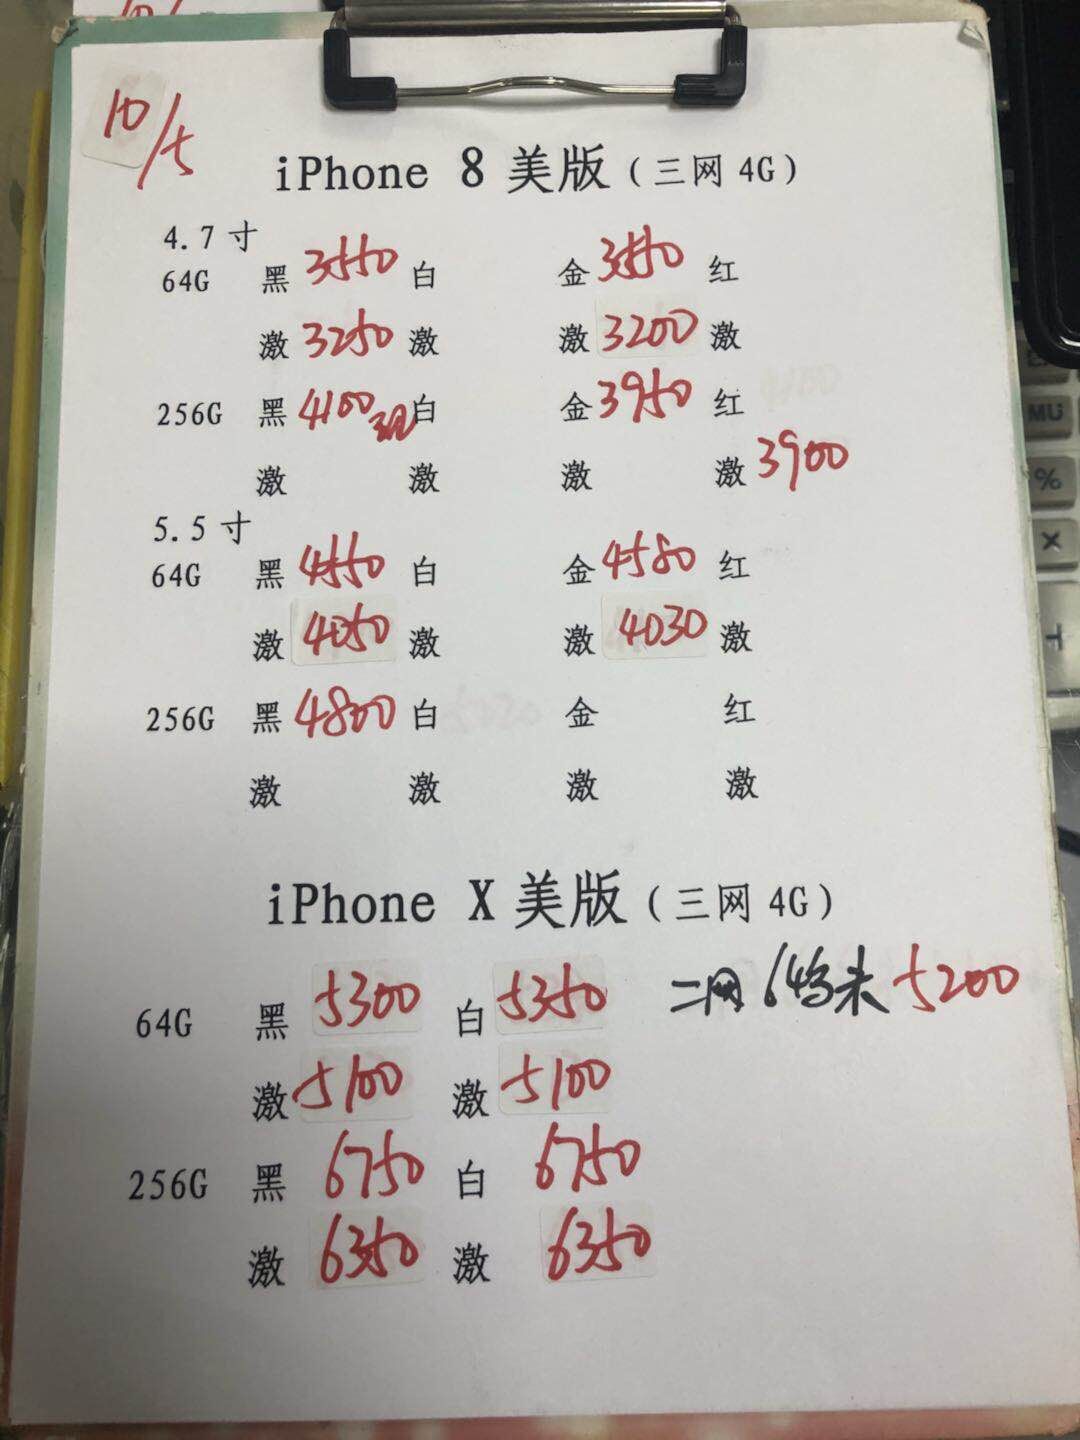 10/5
iPhone 8 美版(三网 4G)
4.7寸
64G 黑 3550 白 金 3550 红
激 3250 激 激 3200 激
256G 黑 4100 白 金 3950 红
激 激 激 激 3900
5.5寸
64G 黑 4550 白 金 4580 红
激 4050 激 激 4030 激
256G 黑 4800 白 金 红
激 激 激 激
iPhone X 美版(三网 4G)
64G 黑 5300 白 5350 二网 64 未 5200
激 5100 激 5100
256G 黑 6750 白 6750
激 6350 激 6350
MU
%
×